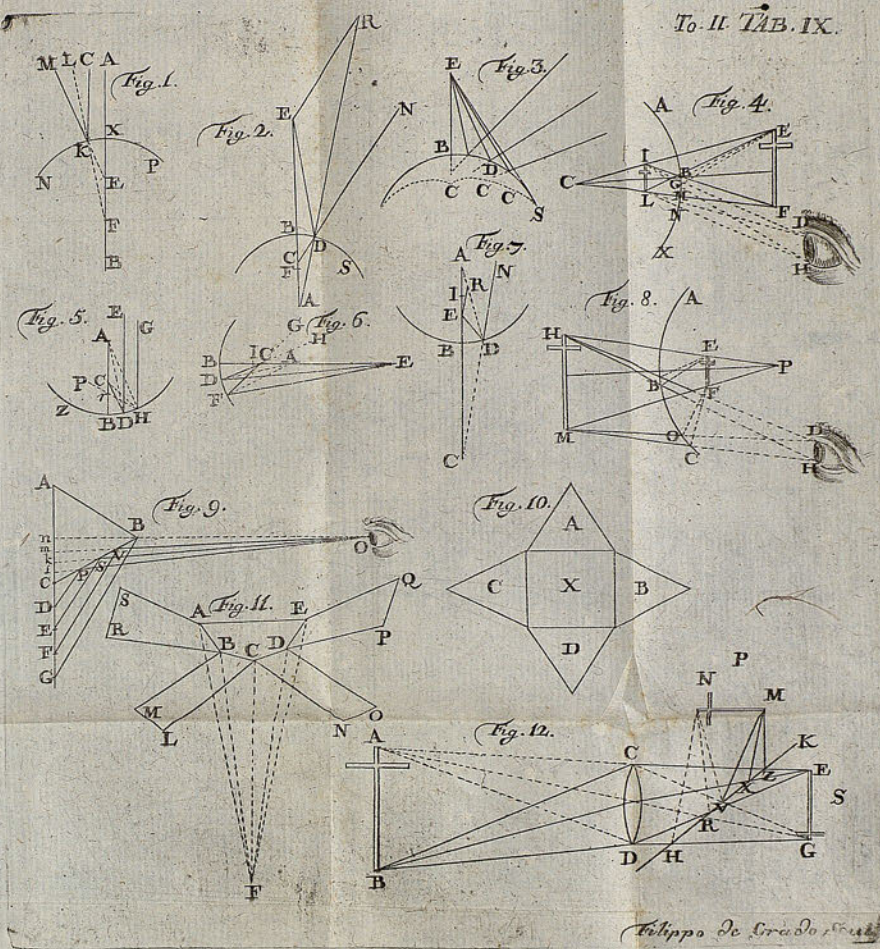 To. II. TAB. IX.
Fig. 1.
M L C A
K X
N P
E
F
B
Fig. 2.
R
E N
B D
C
F S
A
Fig. 3.
E
B D
C C C
S
Fig. 4.
A
E
I B
C G
L M
N F
D
X H
Fig. 5.
E G
A
P C
Z
B D H
Fig. 6.
G H
I C A
B E
D
F
Fig. 7.
A
I R N
E
B D
C
Fig. 8.
A
H E
P
B F
M O D
C H
Fig. 9.
A
B
n
m
k
C P S V O
D
E
F
G
Fig. 10.
A
C X B
D
Fig. 11.
S A E Q
R B C D P
M O
L N
F
Fig. 12.
P
N M
A K
C X Z E
V S
R
D H G
B
Filippo de Grado